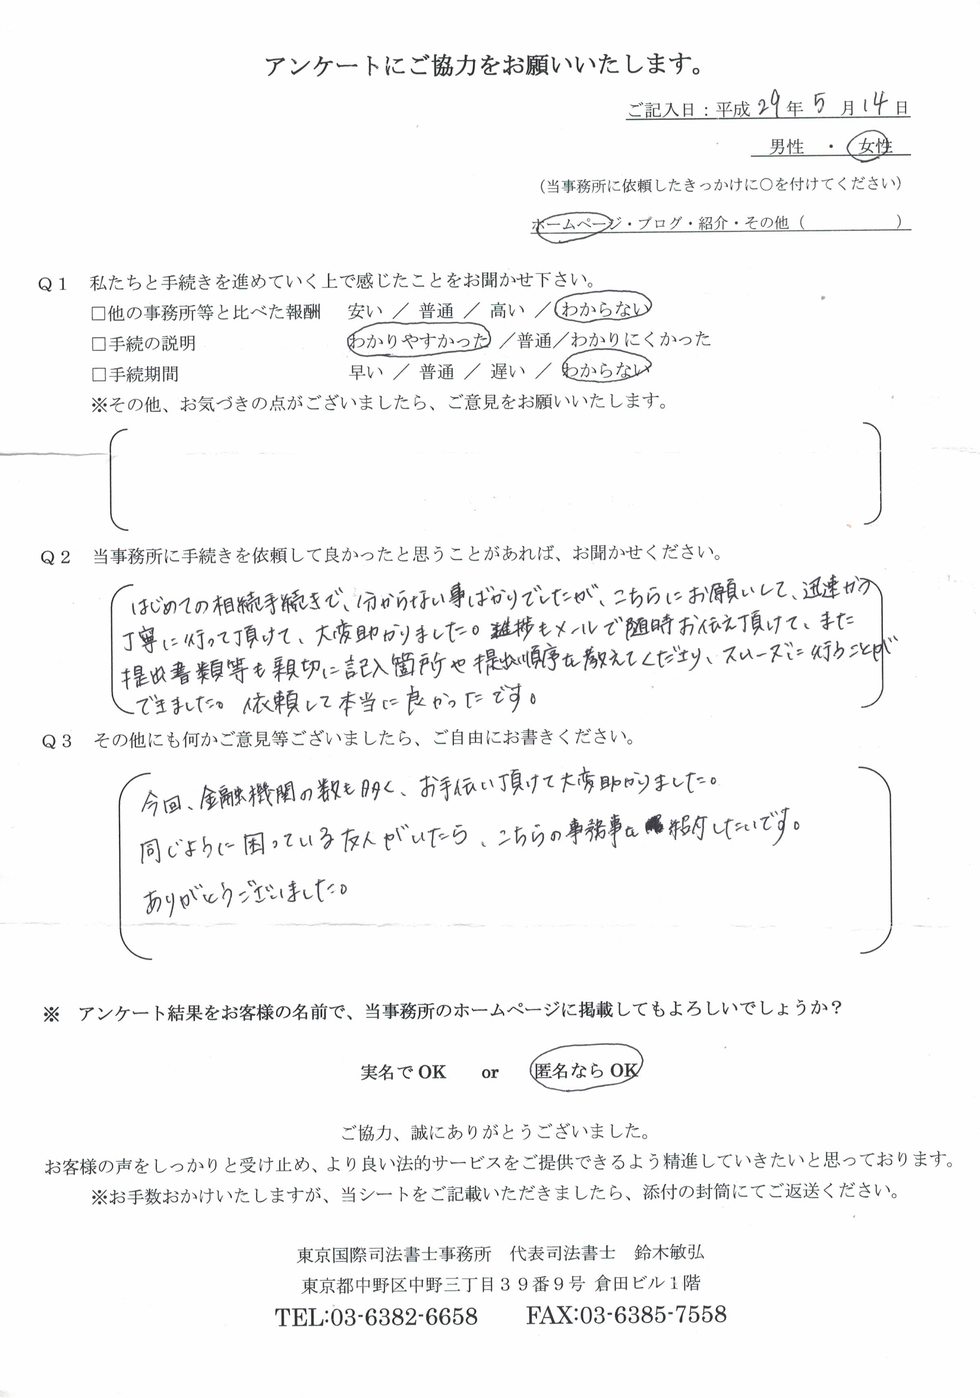 アンケートにご協力をお願いいたします。
ご記入日：平成 29 年 5 月 14 日
男性 ・ 女性
（当事務所に依頼したきっかけに○を付けてください）
ホームページ・ブログ・紹介・その他（　　　　　）
Ｑ１　私たちと手続きを進めていく上で感じたことをお聞かせ下さい。
□他の事務所等と比べた報酬　安い ／ 普通 ／ 高い ／ わからない
□手続の説明　わかりやすかった ／普通／わかりにくかった
□手続期間　早い ／ 普通 ／ 遅い ／ わからない
※その他、お気づきの点がございましたら、ご意見をお願いいたします。
Ｑ２　当事務所に手続きを依頼して良かったと思うことがあれば、お聞かせください。
はじめての相続手続きで、分からない事ばかりでしたが、こちらにお願いして、迅速かつ
丁寧に行って頂けて、大変助かりました。進捗もメールで随時お伝え頂けて、また
提出書類等も親切に記入箇所や提出順序を教えてくださり、スムーズに行うことが
できました。依頼して本当に良かったです。
Ｑ３　その他にも何かご意見等ございましたら、ご自由にお書きください。
今回、金融機関の数も多く、お手伝い頂けて大変助かりました。
同じように困っている友人がいたら、こちらの事務事を紹介したいです。
ありがとうございました。
※　アンケート結果をお客様の名前で、当事務所のホームページに掲載してもよろしいでしょうか？
実名でOK　or　匿名ならOK
ご協力、誠にありがとうございました。
お客様の声をしっかりと受け止め、より良い法的サービスをご提供できるよう精進していきたいと思っております。
※お手数おかけいたしますが、当シートをご記載いただきましたら、添付の封筒にてご返送ください。
東京国際司法書士事務所　代表司法書士　鈴木敏弘
東京都中野区中野三丁目３９番９号 倉田ビル１階
TEL:03-6382-6658　FAX:03-6385-7558